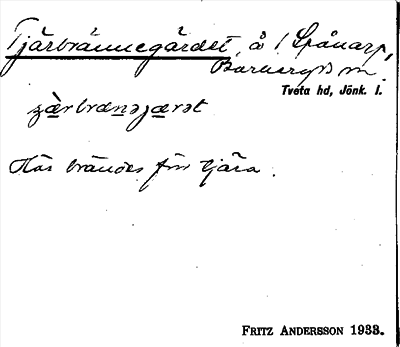 Tjärbrännegärdet, å 1 Spånarp,
Barnarps sn.
Tveta hd, Jönk. l.
Här brändes förr tjära.
FRITZ ANDERSSON 1933.